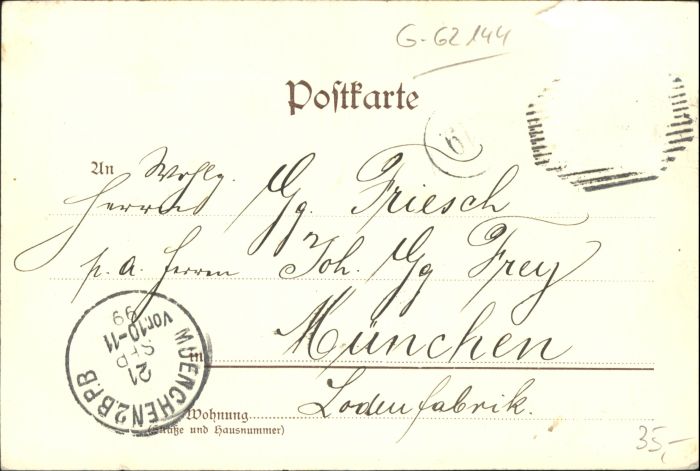 G-62144
Postkarte
61
An Wohlg.
Herrn Gg. Friesch
p. a. Herrn Joh. Gg Frey
in München
Wohnung Lodenfabrik.
(Straße und Hausnummer)
MUENCHEN 2.B.P.B
21
SEP
Vor.10-11
99
35,-